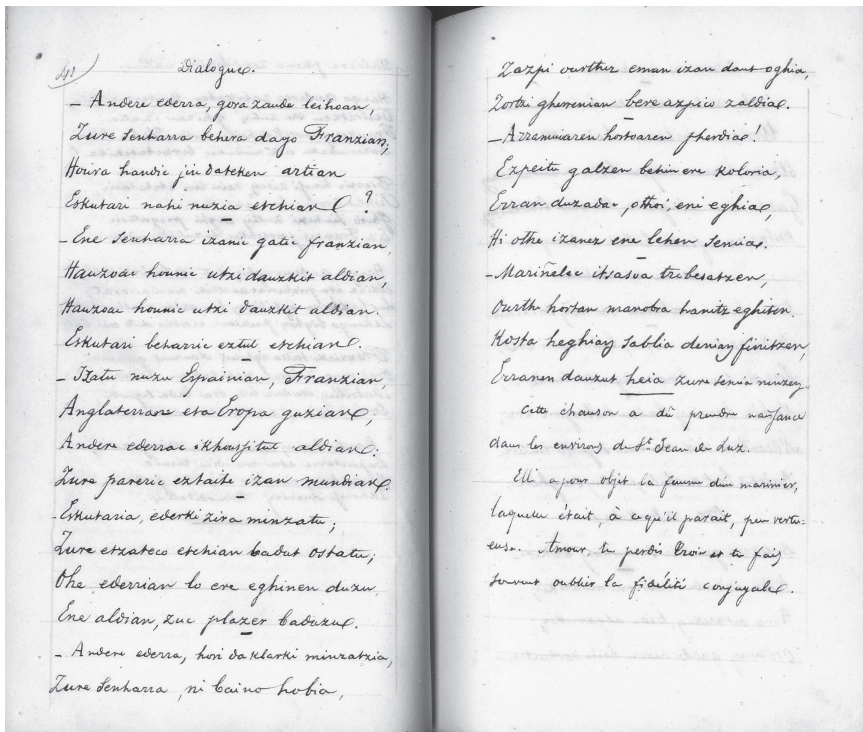 41)
Dialogue.
– Andere ederra, gora zaude leihoan,
Zure senharra behera dago Franzian;
Houra handic jin dateken artian
Eskutari nahi nuzia etchian ?
– Ene senharra izanic gatic franzian,
Hauzoac hounic utzi dauzkit aldian,
Hauzoac hounic utzi dauzkit aldian.
Eskutari beharric eztut etchian.
– Izatu nuzu Espainian, Franzian,
Anglaterran eta Eropa guzian;
Andere ederrac ikhousi tut aldian;
Zure pareric eztaite izan mundian.
– Eskutaria, ederki zira minzatu;
Zure etzateco etchian badut ostatu;
Ohe ederrian lo ere eghinen duzu,
Ene aldian, zuc plazer baduzu.
– Andere ederra, hori da klarki minzatzia,
Zure senharra, ni baino hobia,
Zazpi ourthez eman izan daut oghia,
Zortzi gherrenian bere azpico zaldia.
– Arramaiaren hostoaren pherdia!
Ezpeitu galzen behin ere koloria,
Erran duzadac, othoi, eni eghia,
Hi othe izanez ene lehen semia.
– Mariñelec itsasoa trebesatzen,
Ourthe hortan manobra hanitz eghiten.
Kosta heghian sablia denian finitzen,
Erranen dauzut heia zure semia ninzen.
Cette chanson a dû prendre naissance
dans les environs de St Jean de Luz.
Elle a pour objet la femme d'un marinier,
laquelle était, à ce qu'il parait, peu vertu-
euse. Amour, tu perdis Troie et tu fais
souvent oublier la fidélité conjugale.